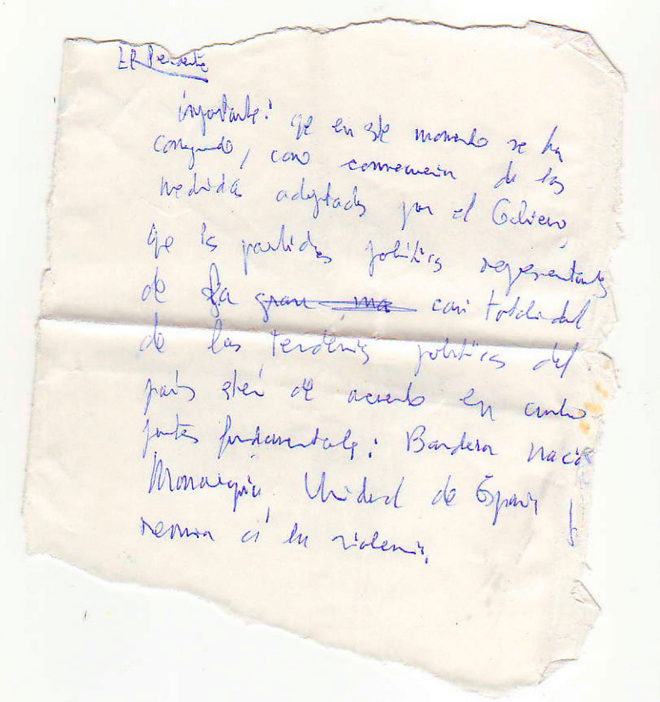 El Presidente
importante: qe en este momento se ha
conseguido, como consecuencia de las
medidas adoptadas por el Gobierno,
que los partidos políticos representantes
de la gran ma casi totalidad
de las tendencias políticas del
país estén de acuerdo en cuatro
puntos fundamentales: Bandera nacio
Monarquía, Unidad de España y
renuncia a la violencia.